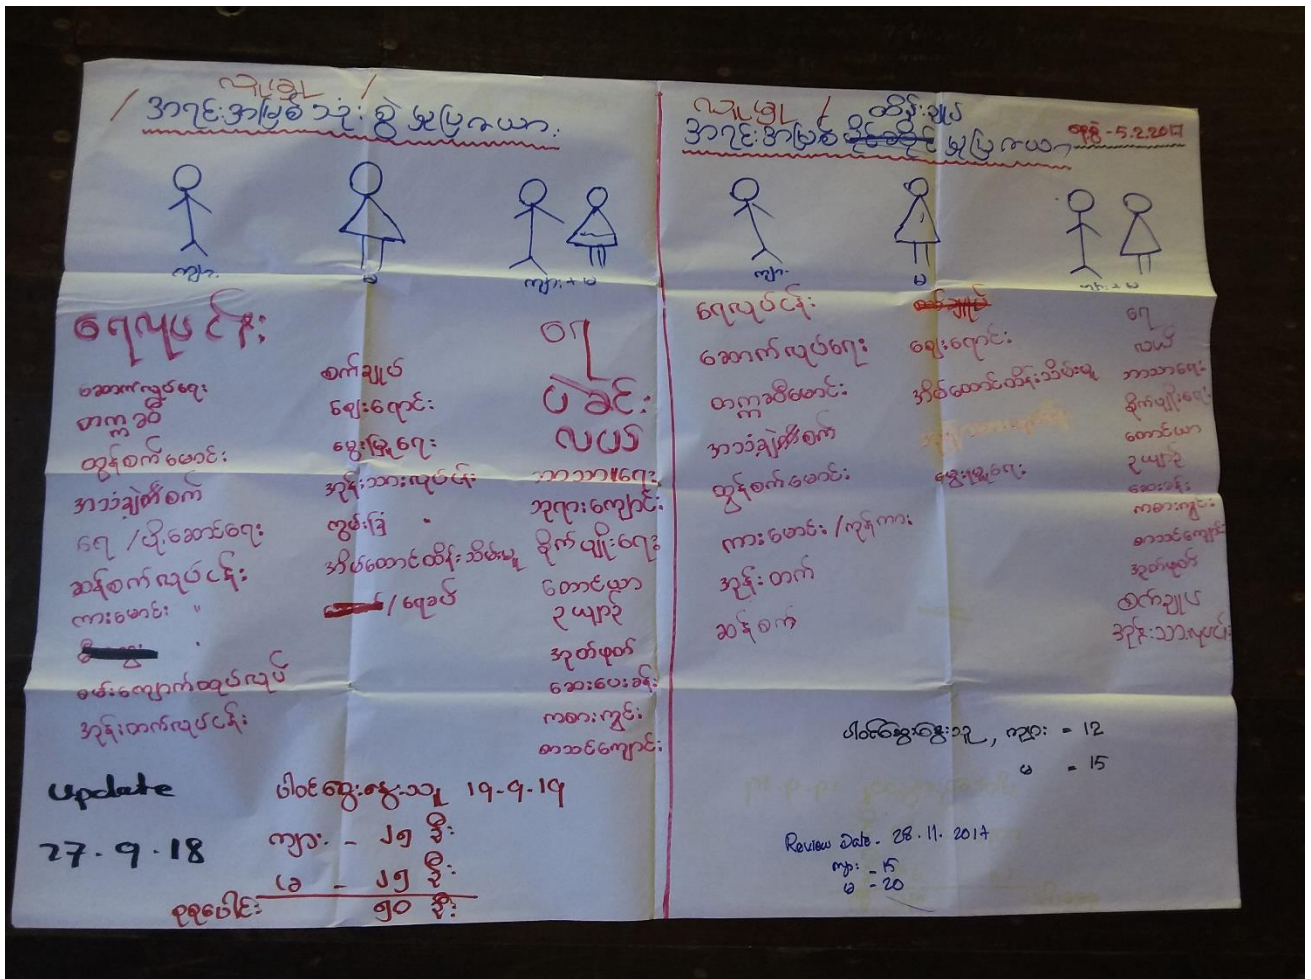 လူမှု /
/ အရင်းအမြစ်သုံးစွဲမှုပြဇယား
ကျား
မ
ကျား + မ
ရေလုပ်ငန်း
ဆောက်လုပ်ရေး
တက္ကစီ
ထွန်စက်မောင်း
အသံချဲ့စက်
ရေ /ပို့ဆောင်ရေး
ဆန်စက်လုပ်ငန်း
ကားမောင်း "
စမ်းကျောက်ထုပ်လုပ်
အုန်းတက်လုပ်ငန်း
စက်ချုပ်
ဈေးရောင်း
မွေးမြူရေး
အုန်းသားလုပ်ငန်း
ကွမ်းခြံ "
အိမ်ထောင်ထိန်းသိမ်းမှု
/ ရေခပ်
ရေ
ပဲခင်း
လယ်
ဘာသာရေး
ဘုရားကျောင်း
စိုက်ပျိုးရေး
တောင်ယာ
ဥယျာဉ်
အုတ်ဖုတ်
ဆေးပေးခန်း
ကစားကွင်း
စာသင်ကျောင်း
update
27.9.18
ပါဝင်ဆွေးနွေးသူ ၁၅-၅-၁၅
ကျား - ၂၅ ဦး
မ - ၂၅ ဦး
စုစုပေါင်း ၅၀ ဦး
လူမှု / ထိန်းချုပ်
အရင်းအမြစ် မှုပြဇယား
နေ့စွဲ - 5.2.2017
ကျား
မ
ကျား + မ
ရေလုပ်ငန်း
ဆောက်လုပ်ရေး
တက္ကစီမောင်း
အသံချဲ့စက်
ထွန်စက်မောင်း
ကားမောင်း / ကုန်ကား
အုန်းတက်
ဆန်စက်
ဈေးရောင်း
အိမ်ထောင်ထိန်းသိမ်းမှု
မွေးမြူရေး
ရေ
လယ်
ဘာသာရေး
စိုက်ပျိုးရေး
တောင်ယာ
ဥယျာဉ်
ဆေးခန်း
ကစားကွင်း
စာသင်ကျောင်း
အုတ်ဖုတ်
စက်ချုပ်
အုန်းသားလုပ်ငန်း
ပါဝင်ဆွေးနွေးသူ, ကျား = 12
မ = 15
Review Date - 28.11.2017
ကျား - 15
မ - 20